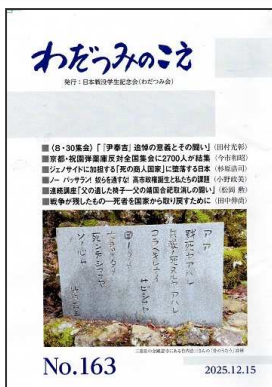 わだつみのこえ
発行：日本戦没学生記念会（わだつみ会）
■〈8・30集会〉「『尹奉吉』追悼の意義とその闘い」（田村光彰）
■京都・祝園弾薬庫反対全国集会に2700人が結集（今市和昭）
■ジェノサイドに加担する「死の商人国家」に堕落する日本（杉原浩司）
■ノー パッサラン！ 奴らを通すな！ 高市政権誕生と私たちの課題（小野政美）
■連続講座「父の遺した椅子―父の靖国合祀取消しの闘い」（松岡 勲）
■戦争が残したもの―死者を国家から取り戻すために（田中伸尚）
アア
戦死ヤアハレ
兵隊ノ死ヌルヤアハレ
No.163
2025.12.15